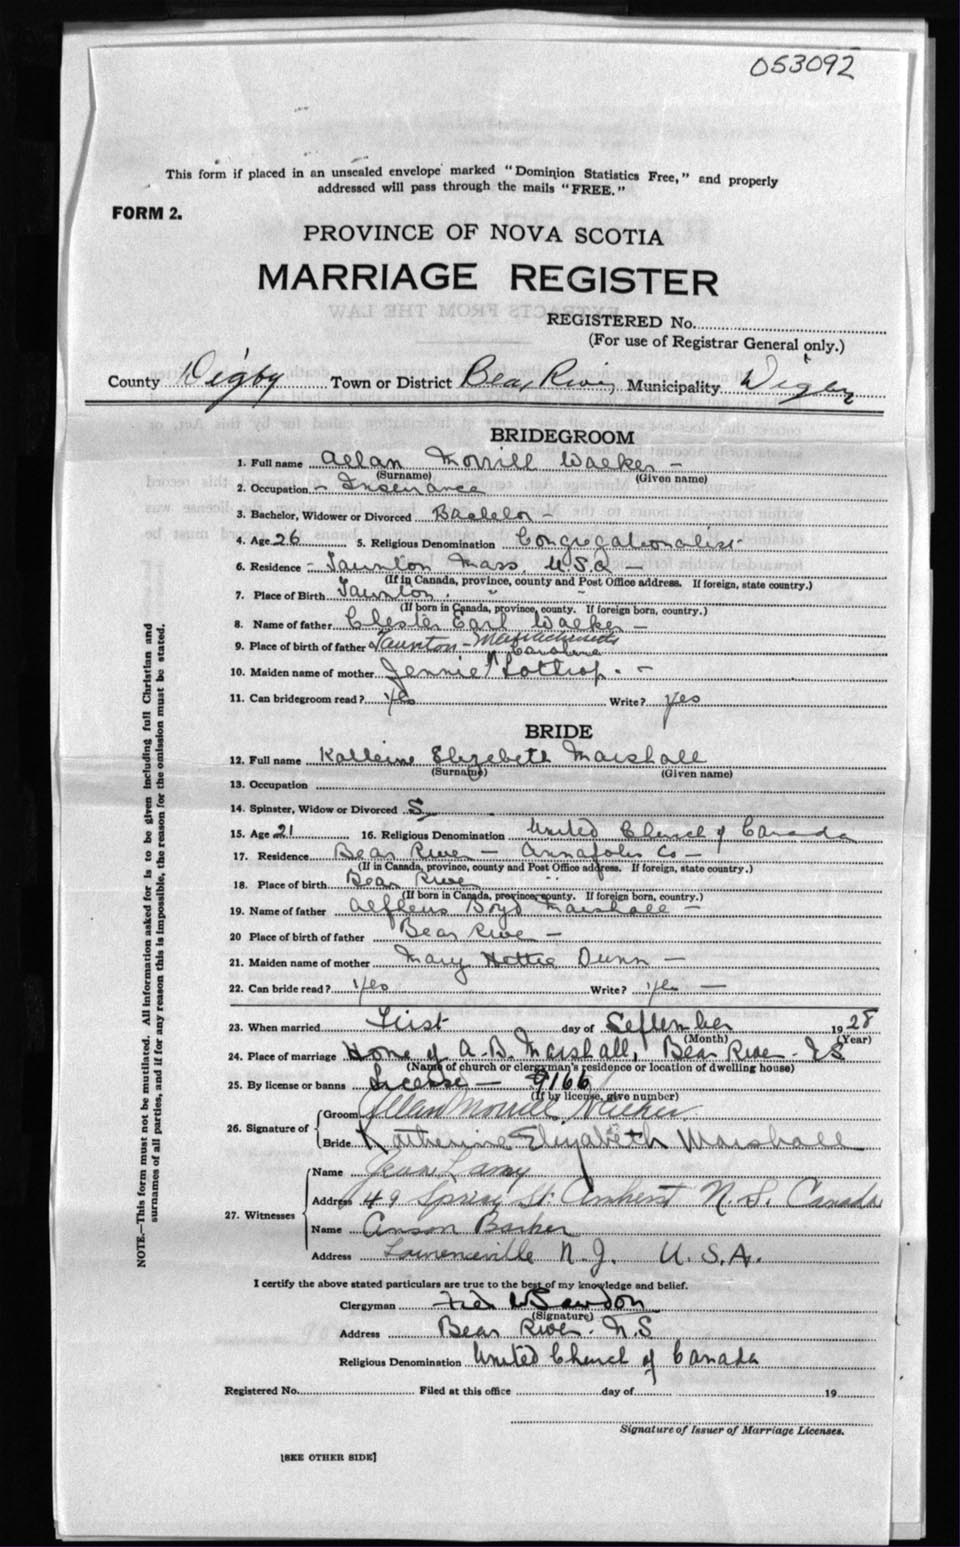 053092
This form if placed in an unsealed envelope marked "Dominion Statistics Free," and properly
addressed will pass through the mails "FREE."
FORM 2.
PROVINCE OF NOVA SCOTIA
MARRIAGE REGISTER
REGISTERED No.
(For use of Registrar General only.)
County Digby Town or District Bear River Municipality Digby
BRIDEGROOM
1. Full name Allan Morrill Walker -
(Surname) (Given name)
2. Occupation - Insurance
3. Bachelor, Widower or Divorced Bachelor -
4. Age 26 5. Religious Denomination Congregationalist
6. Residence - Taunton Mass. U.S.A -
(If in Canada, province, county and Post Office address. If foreign, state country.)
7. Place of Birth Taunton. " "
(If born in Canada, province, county. If foreign born, country.)
8. Name of father Chester Earl Walker -
9. Place of birth of father Taunton - Massachusetts
Caroline
10. Maiden name of mother Jennie ^ Lothrop. -
11. Can bridegroom read? Yes Write? Yes
BRIDE
12. Full name Elizebeth Marshall
(Surname) (Given name)
13. Occupation
14. Spinster, Widow or Divorced S
15. Age 21 16. Religious Denomination United Church of Canada
17. Residence Bear River - Annapolis Co -
(If in Canada, province, county and Post Office address. If foreign, state country.)
18. Place of birth Bear River " "
(If born in Canada, province, county. If foreign born, country.)
19. Name of father Alfleus Boyd Marshall -
20 Place of birth of father Bear River -
21. Maiden name of mother Mary Hettie Dunn -
22. Can bride read? Yes Write? Yes -
23. When married First day of September 1928
(Month) (Year)
24. Place of marriage Home of A. B. Marshall, Bear River - NS
(Name of church or clergyman's residence or location of dwelling house)
25. By license or banns License - 9166
(If by license, give number)
26. Signature of Groom Allan Morrill Walker
Bride Katherine Elizabeth Marshall
27. Witnesses Name Jean Lamy
Address 49 Spring St. Amherst N.S. Canada
Name Anson Barker
Address Lawrenceville N.J. U.S.A.
I certify the above stated particulars are true to the best of my knowledge and belief.
Clergyman
(Signature)
Address Bear River. N.S
Religious Denomination United Church of Canada
Registered No. Filed at this office day of 19
Signature of Issuer of Marriage Licenses.
[SEE OTHER SIDE]
NOTE.—This form must not be mutilated. All information asked for is to be given including full Christian and
surnames of all parties, and if for any reason this is impossible, the reason for the omission must be stated.